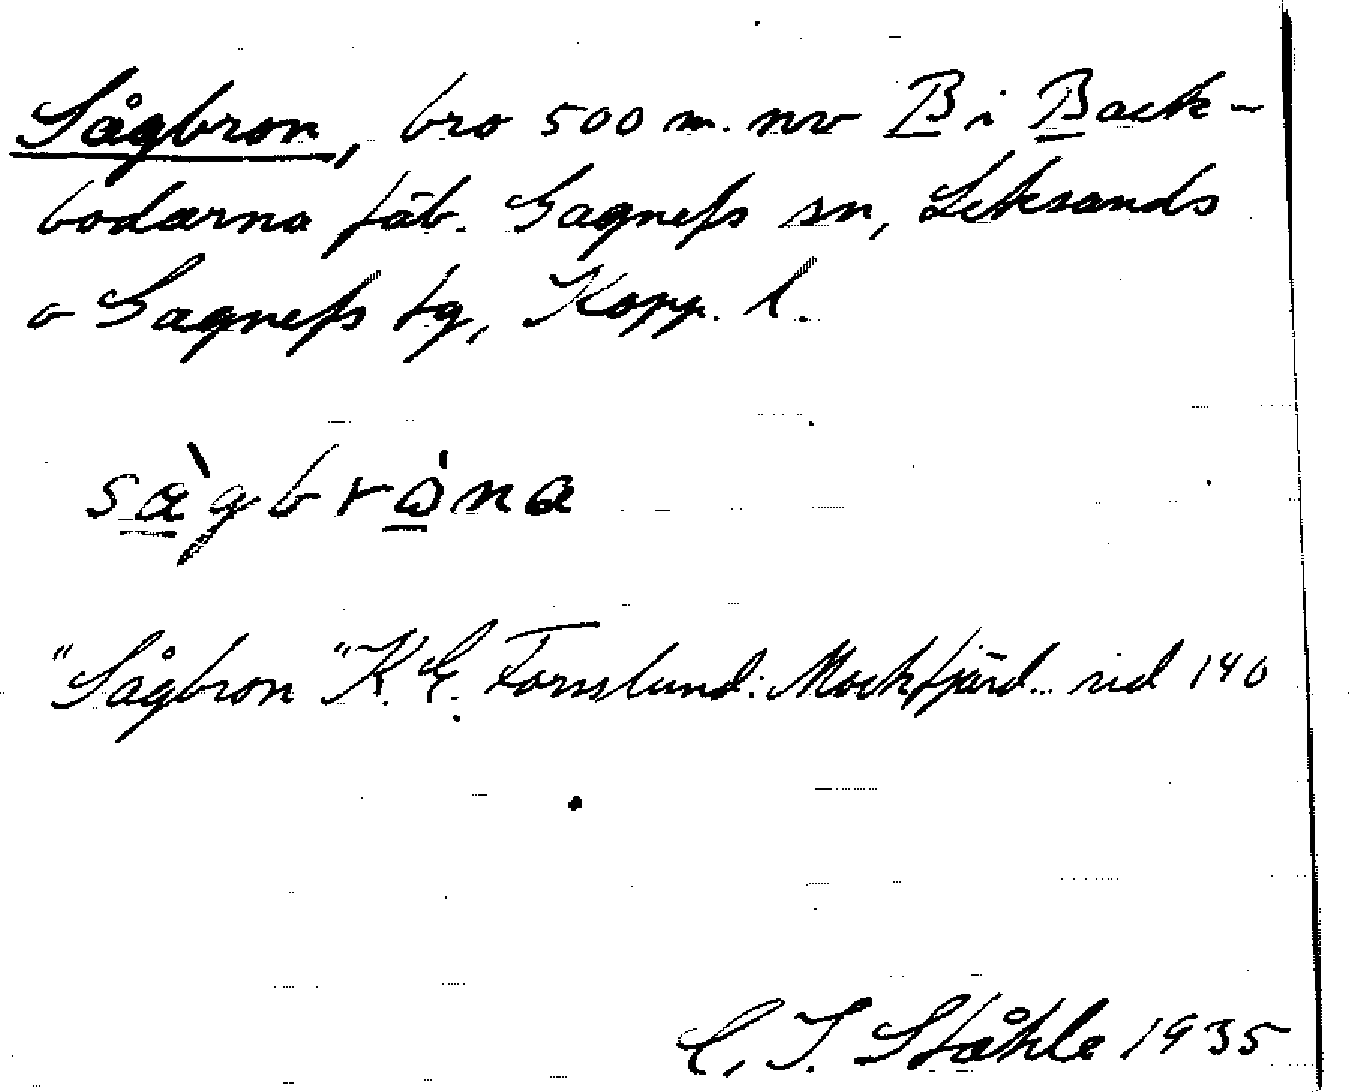 Sågbron, bro 500 m. nv B i Back-
bodarna fäb. Gagnefs sn, Leksands
o Gagnefs tg, Kopp. l.
sàgbròna
"Sågbron" K. E. Forsslund: Mockfjärd.. sid 140
C. I. Ståhle 1935